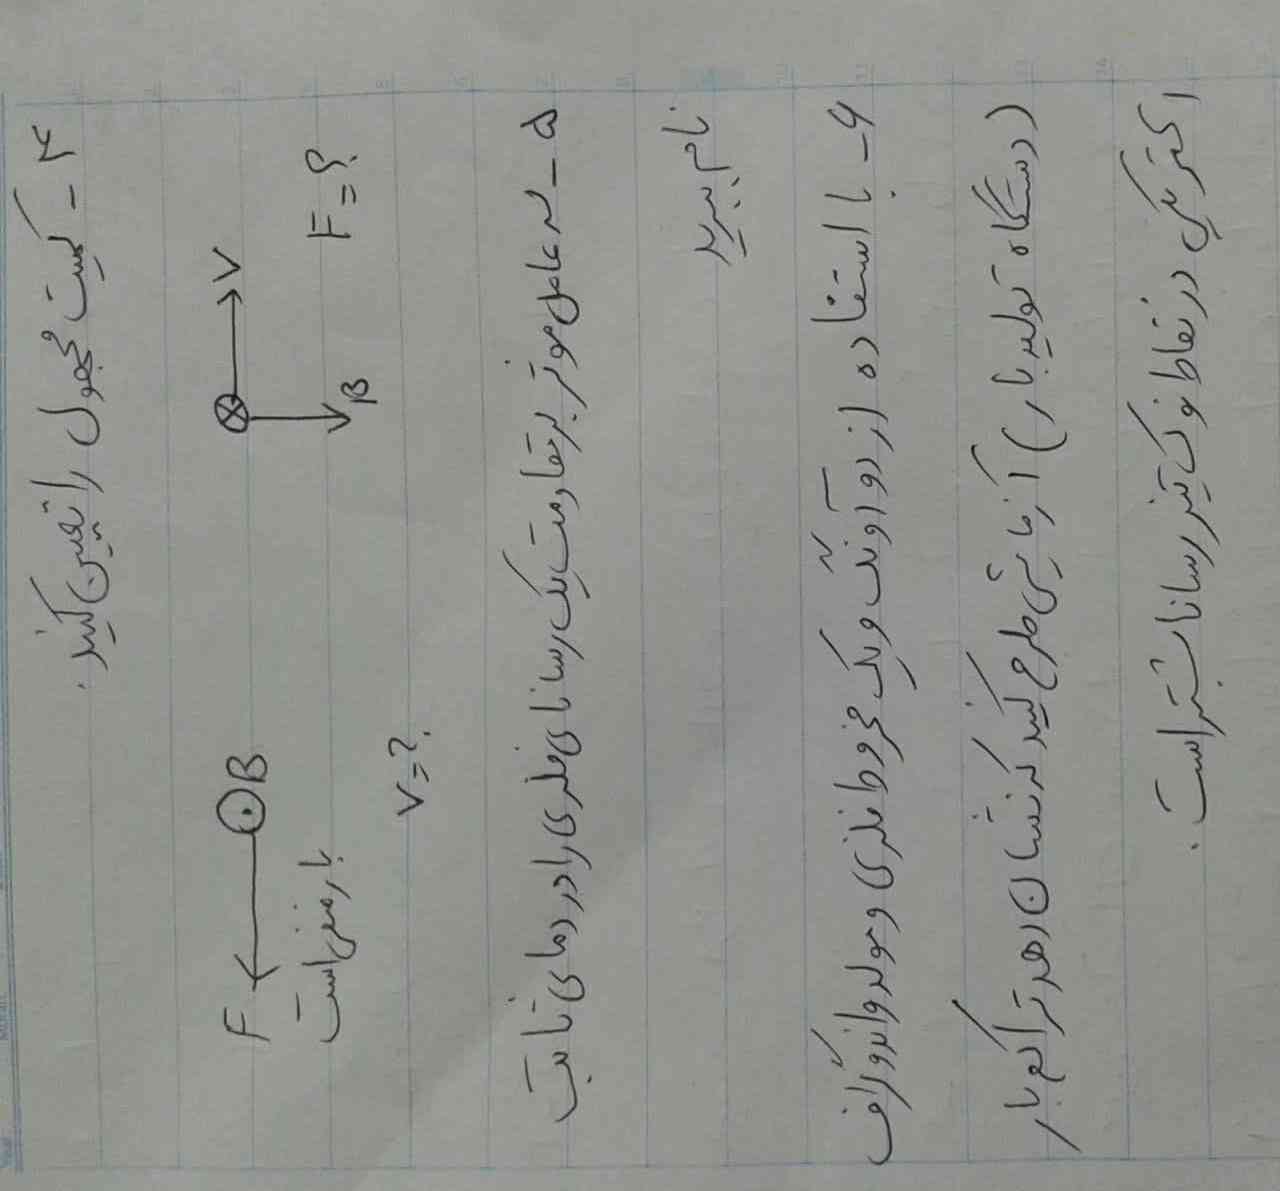 ۴- کمیت مجهول را تعیین کنید.
V B F=?
F B V=?
بار منفی است
۵- سه عامل موثر بر مقاومت یک رسانای فلزی را در دمای ثابت
نام ببرید
۶- با استفاده از دو آونگ و یک مخروط فلزی و مولد واندوگراف
(دستگاه تولید بار) آزمایشی طرح کنید که نشان دهد تراکم بار
الکتریکی در نقاط نوک تیز رسانا بیشتر است.